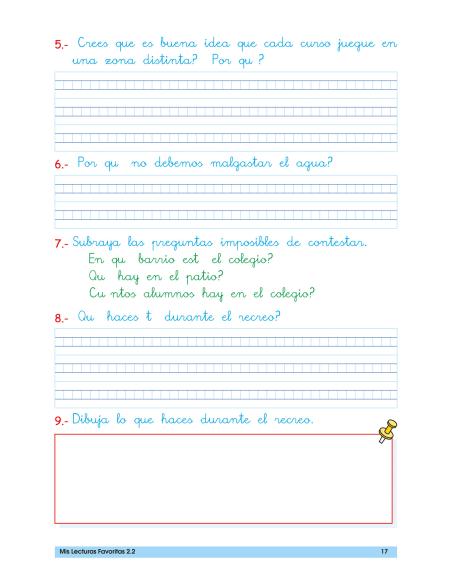 5.- Crees que es buena idea que cada curso juegue en
una zona distinta? Por qu ?
6.- Por qu no debemos malgastar el agua?
7.- Subraya las preguntas imposibles de contestar.
En qu barrio est el colegio?
Qu hay en el patio?
Cu ntos alumnos hay en el colegio?
8.- Qu haces t durante el recreo?
9.- Dibuja lo que haces durante el recreo.
Mis Lecturas Favoritas 2.2 17